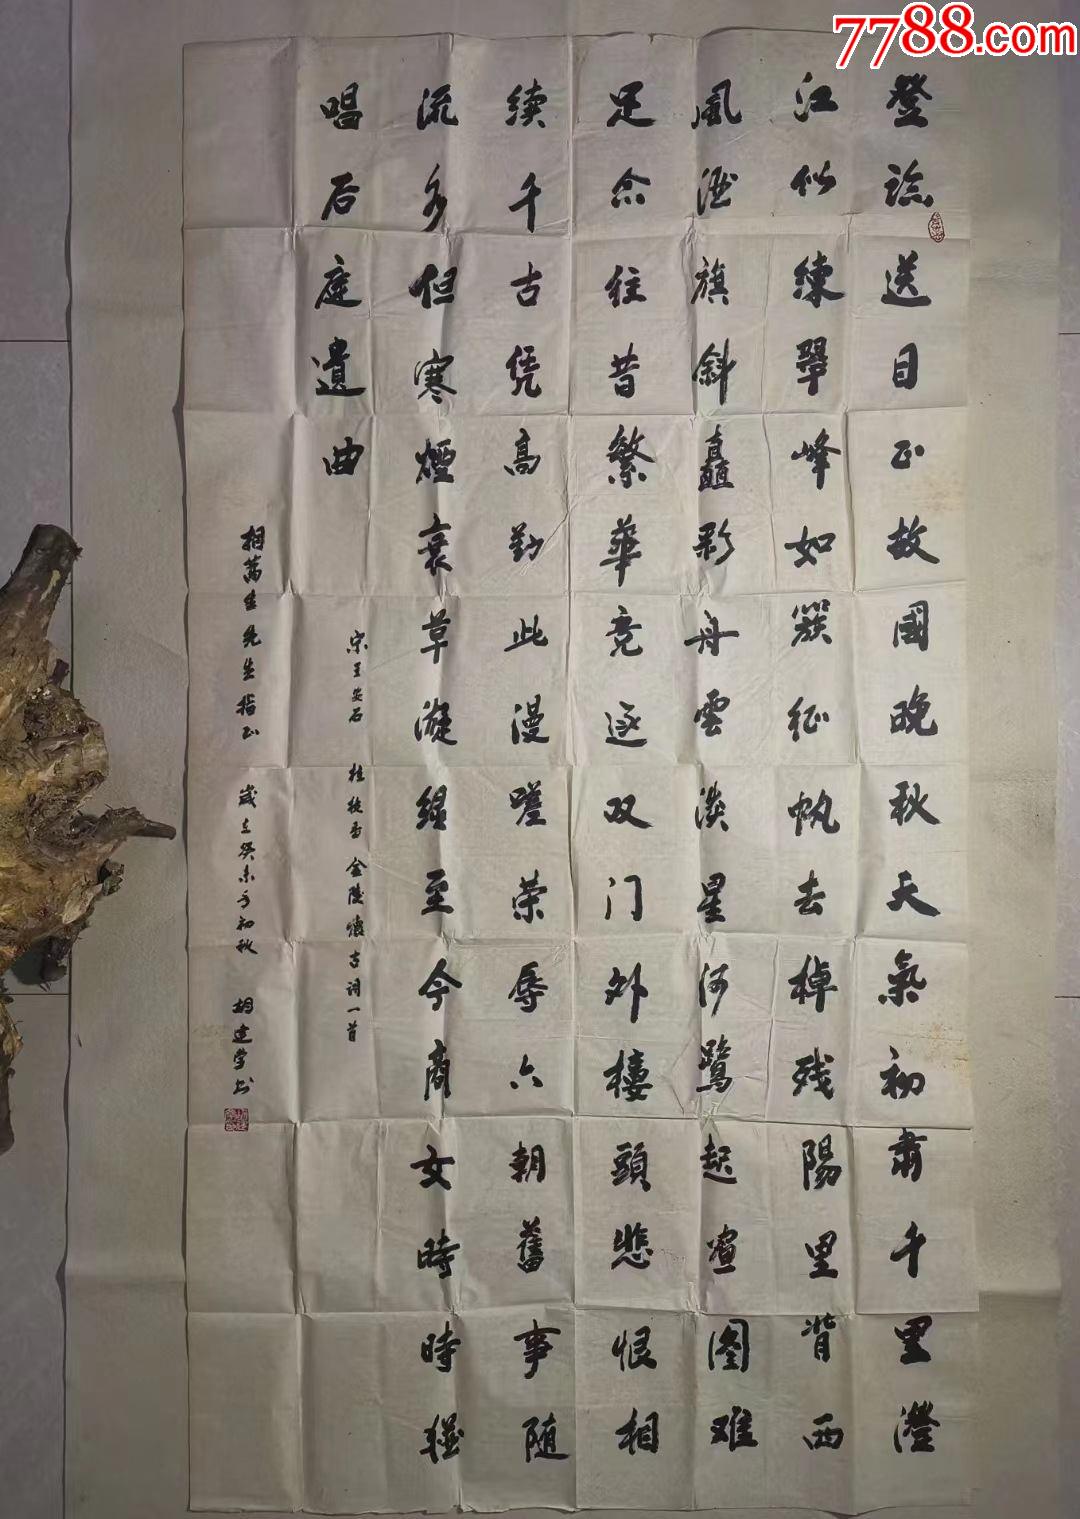 7788.com
登臨送目正故國晚秋天氣初肅千里澄
江似練翠峰如簇征帆去棹残陽里背西
風酒旗斜矗彩舟雲淡星河鹭起畫图难
足念往昔繁華竞逐双门外樓頭悲恨相
续千古凭高對此漫嗟荣辱六朝舊事随
流水但寒煙衰草凝緑至今商女時時猶
唱后庭遺曲
宋王安石 桂枝香 金陵懷古词一首
萬生先生指正 歲在癸未年初秋 胡建学书